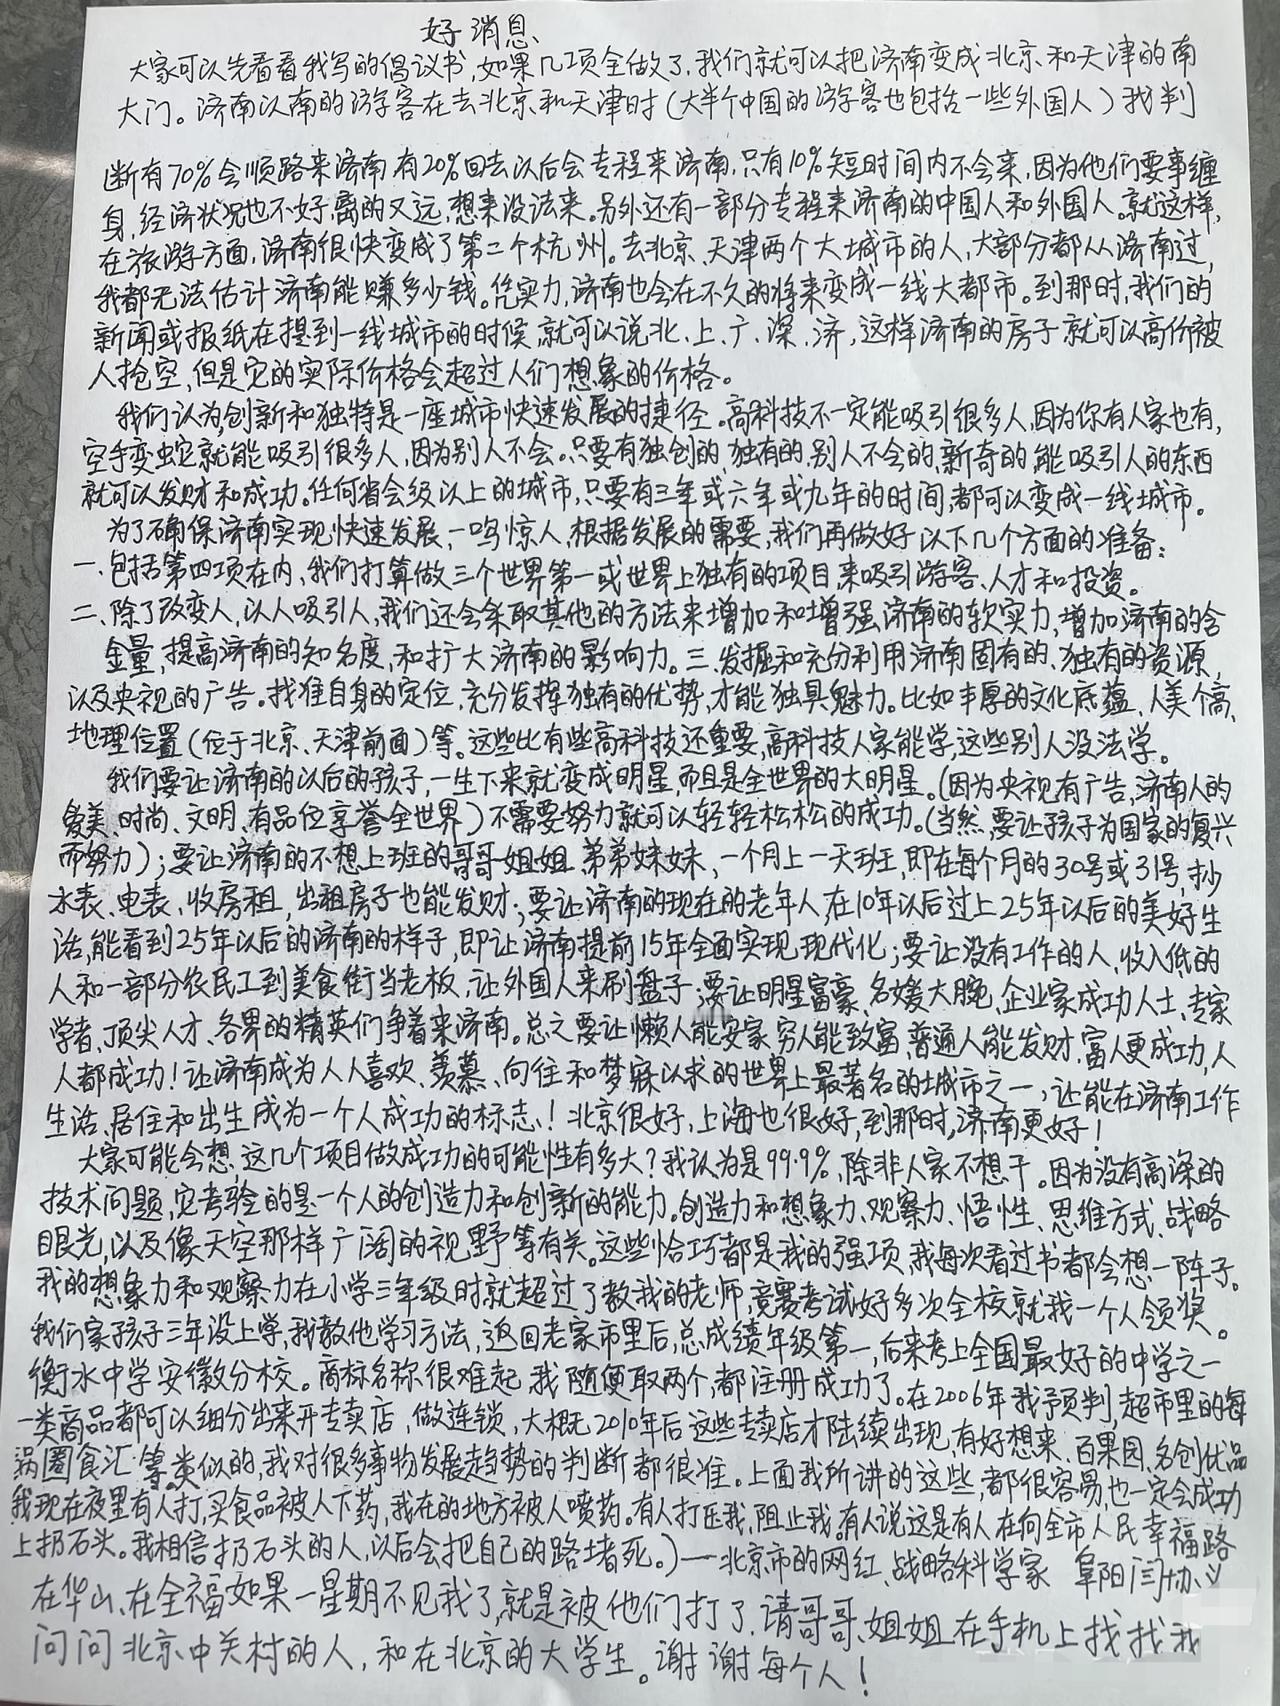 好消息
大家可以先看看我写的倡议书,如果几项全做了,我们就可以把济南变成北京和天津的南
大门。济南以南的游客在去北京和天津时(大半个中国的游客也包括一些外国人)我判
断有70%会顺路来济南,有20%回去以后会专程来济南,只有10%短时间内不会来,因为他们要事缠
身,经济状况也不好,离的又远,想来没法来。另外还有一部分专程来济南的中国人和外国人。就这样,
在旅游方面,济南很快变成了第二个杭州。去北京、天津两个大城市的人,大部分都从济南过,
我都无法估计济南能赚多少钱。凭实力,济南也会在不久的将来变成一线大都市。到那时,我们的
新闻或报纸在提到一线城市的时候,就可以说北、上、广、深、济,这样济南的房子就可以高价被
人抢空,但是它的实际价格会超过人们想象的价格。
我们认为,创新和独特是一座城市快速发展的捷径。高科技不一定能吸引很多人,因为你有人家也有,
空手变蛇就能吸引很多人,因为别人不会。只要有独创的、独有的、别人不会的、新奇的、能吸引人的东西
就可以发财和成功。任何省会级以上的城市,只要有三年或六年或九年的时间,都可以变成一线城市。
为了确保济南实现快速发展,一鸣惊人,根据发展的需要,我们再做好以下几个方面的准备:
一、包括第四项在内,我们打算做三个世界第一或世界上独有的项目,来吸引游客、人才和投资。
二、除了改变人,以人吸引人,我们还会采取其他的方法来增加和增强济南的软实力,增加济南的含
金量,提高济南的知名度,和扩大济南的影响力。三、发掘和充分利用济南固有的、独有的资源,
以及央视的广告。找准自身的定位,充分发挥独有的优势,才能独具魅力。比如丰厚的文化底蕴、人美个高、
地理位置(位于北京、天津前面)等。这些比有些高科技还重要,高科技人家能学,这些别人没法学。
我们要让济南的以后的孩子,一生下来就变成明星,而且是全世界的大明星。(因为央视有广告,济南人的
爱美、时尚、文明、有品位享誉全世界)不需要努力就可以轻轻松松的成功。(当然,要让孩子为国家的复兴
而努力);要让济南的不想上班的哥哥姐姐、弟弟妹妹,一个月上一天班,即在每个月的30号或31号,抄
水表、电表、收房租,出租房子也能发财;要让济南的现在的老年人,在10年以后过上25年以后的美好生
活,能看到25年以后的济南的样子,即让济南提前15年全面实现现代化;要让没有工作的人、收入低的
人和一部分农民工到美食街当老板,让外国人来刷盘子;要让明星富豪、名媛大腕、企业家成功人士、专家
学者、顶尖人才、各界的精英们争着来济南。总之要让懒人能安家,穷人能致富,普通人能发财,富人更成功,人
人都成功!让济南成为人人喜欢、羡慕、向往和梦寐以求的世界上最著名的城市之一,让能在济南工作
生活、居住和出生成为一个人成功的标志!北京很好,上海也很好,到那时,济南更好!
大家可能会想,这几个项目做成功的可能性有多大?我认为是99.9%,除非人家不想干。因为没有高深的
技术问题,它考验的是一个人的创造力和创新的能力。创造力和想象力、观察力、悟性、思维方式、战略
眼光,以及像天空那样广阔的视野等有关。这些恰巧都是我的强项,我每次看过书都会想一阵子。
我的想象力和观察力在小学三年级时就超过了教我的老师,竞赛考试好多次全校就我一个人领奖。
我们家孩子三年没上学,我教他学习方法,返回老家市里后,总成绩年级第一,后来考上全国最好的中学之一
衡水中学安徽分校。商标名称很难起,我随便取两个,都注册成功了。在2006年我予预判,超市里的每
一类商品都可以细分出来开专卖店,做连锁,大概2010年后这些专卖店才陆续出现,有好想来、百果园、名创优品
锅圈食汇等类似的,我对很多事物发展趋势的判断都很准。上面我所讲的这些,都很容易,也一定会成功
我现在夜里有人打,买食品被人下药,我在的地方被人喷药。有人打压我,阻止我。有人说这是有人在向全市人民幸福路
上扔石头。我相信扔石头的人,以后会把自己的路堵死。)——北京市的网红、战略科学家 阜阳闫协义
在华山、在全福如果一星期不见我了,就是被他们打了,请哥哥、姐姐在手机上找找我
问问北京中关村的人,和在北京的大学生。谢谢每个人!